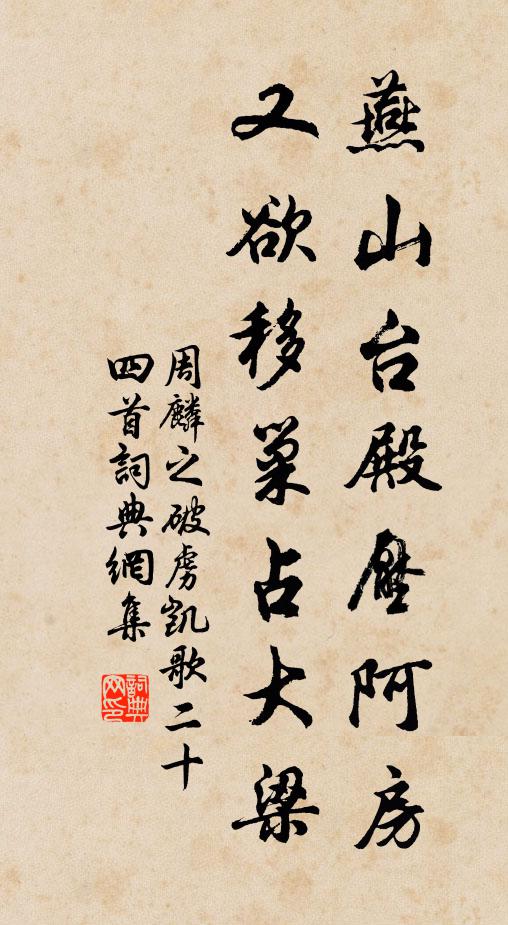 燕山台殿壓阿房
又欲移巢占大梁
周麟之破虜凱歌二十
四首詞典網集
詞典
网印